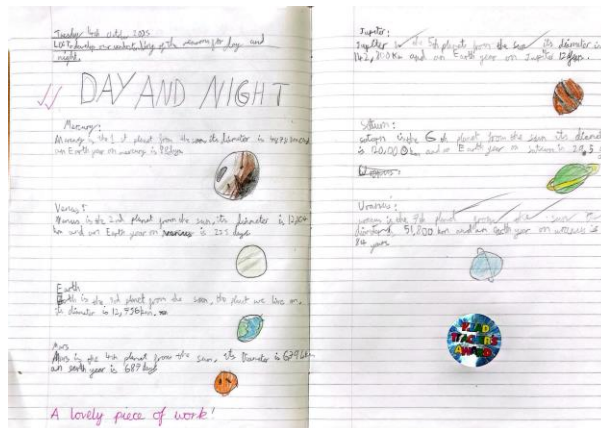 Tuesday 4th 2005
LO: To develop our understanding of the reasons for day and
night.
DAY AND NIGHT
Mercury:
Mercury is the 1st planet from the sun its diameter is
an Earth year on mercury is days
Venus:
Venus is the 2nd planet from the sun, its diameter is
km and an Earth year on is 225 days
Earth
Earth is the 3rd planet from the sun, the planet we live on
its diameter is 12,756km,
Mars
Mars is the 4th planet from the sun, its diameter is
an earth year is 687 days
A lovely piece of work!
Jupiter:
Jupiter is the 5th planet from the sun its diameter is
142, km and an Earth year on Jupiter
Saturn:
saturn is the 6th planet from the sun its
is 120,000 km and an Earth year on is 29.5
Uranus:
is the planet from the sun
51,800 km and an earth year on is
84 years
HEAD
TEACHER'S
AWARD